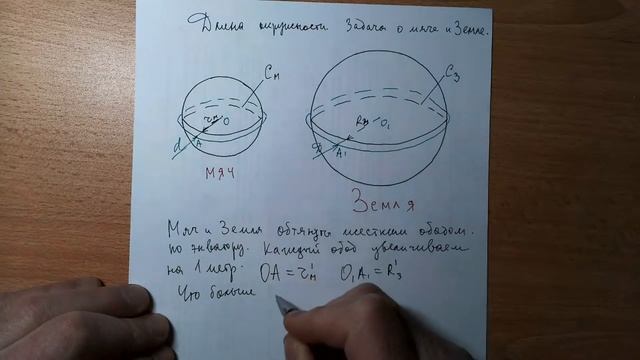 Длина окружности Задача о мяче и Земле.
Cм
Cз
O
O₁
rм
Rз
A
A₁
d
мяч
Земля
Мяч и Земля обтянуты жестким ободом
по экватору. Каждый обод увеличиваем
на 1 метр. OA = r'м O₁A₁ = R'з
Что больше